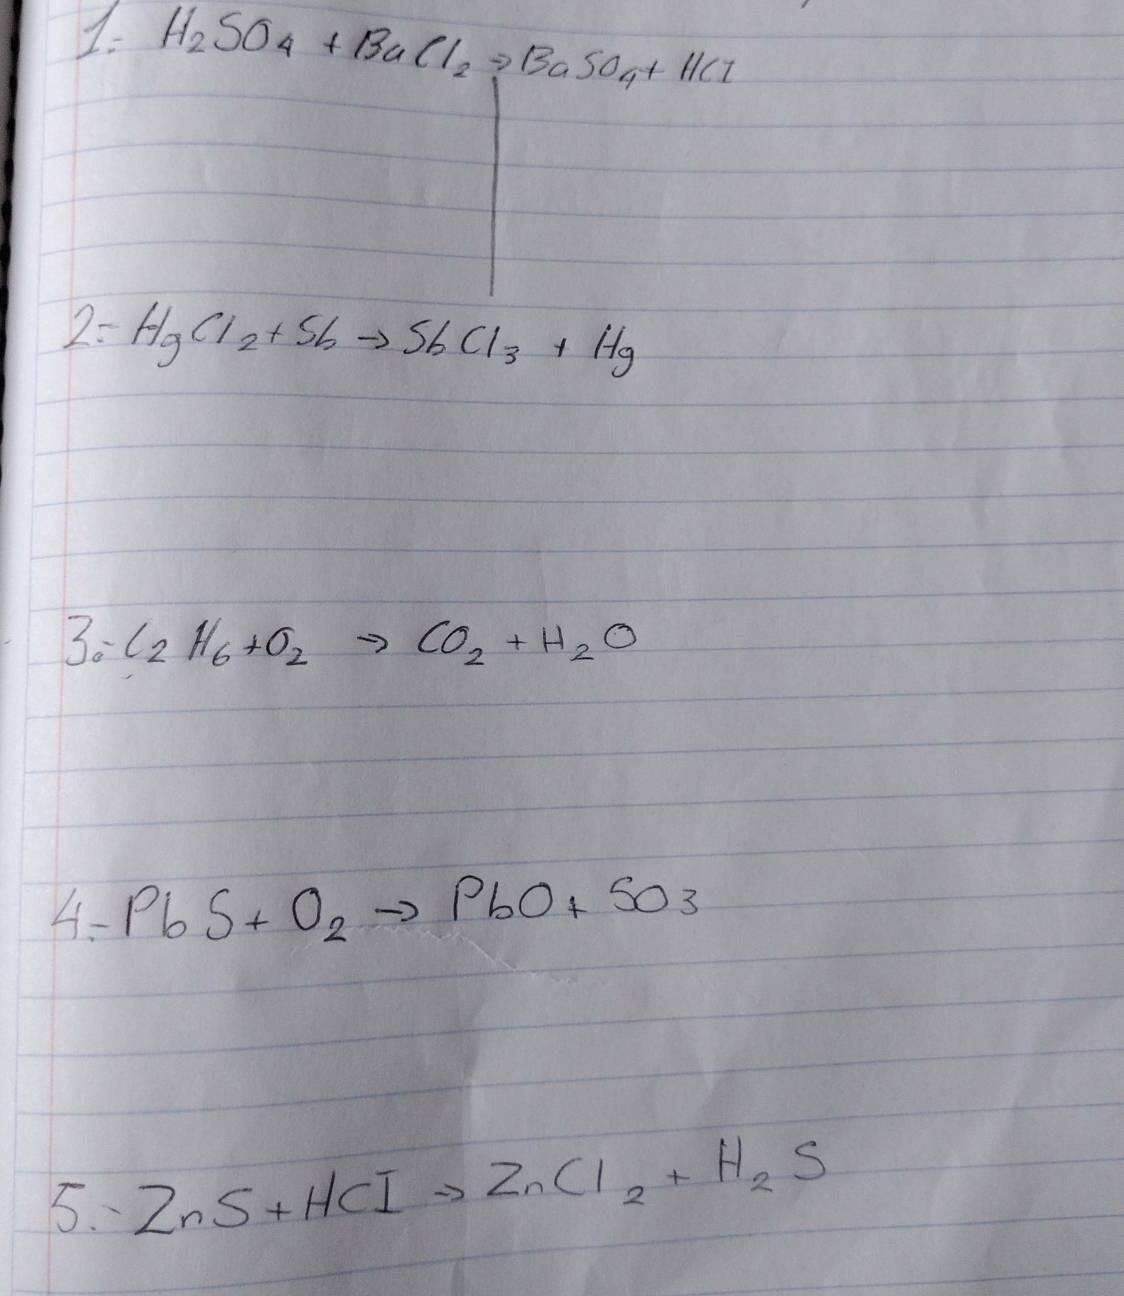 1.- H₂SO₄ + BaCl₂ → BaSO₄ + HCI
2.- HgCl₂ + Sb → SbCl₃ + Hg
3.- C₂H₆ + O₂ → CO₂ + H₂O
4.- PbS + O₂ → PbO + SO₃
5.- ZnS + HCI → ZnCl₂ + H₂S